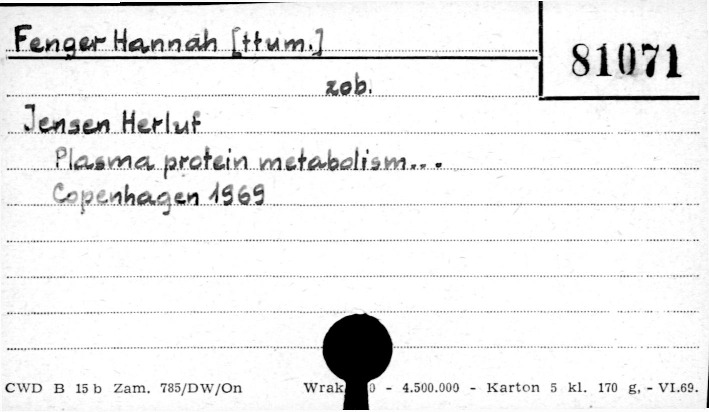 Fenger Hannah [tłum.]
81071
zob.
Jensen Herluf
Plasma protein metabolism...
Copenhagen 1969
CWD B 15 b Zam. 785/DW/On Wrak 0 - 4.500.000 - Karton 5 kl. 170 g, - VI.69.